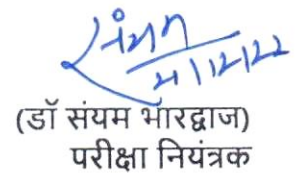 संयम
(डॉ संयम भारद्वाज)
परीक्षा नियंत्रक